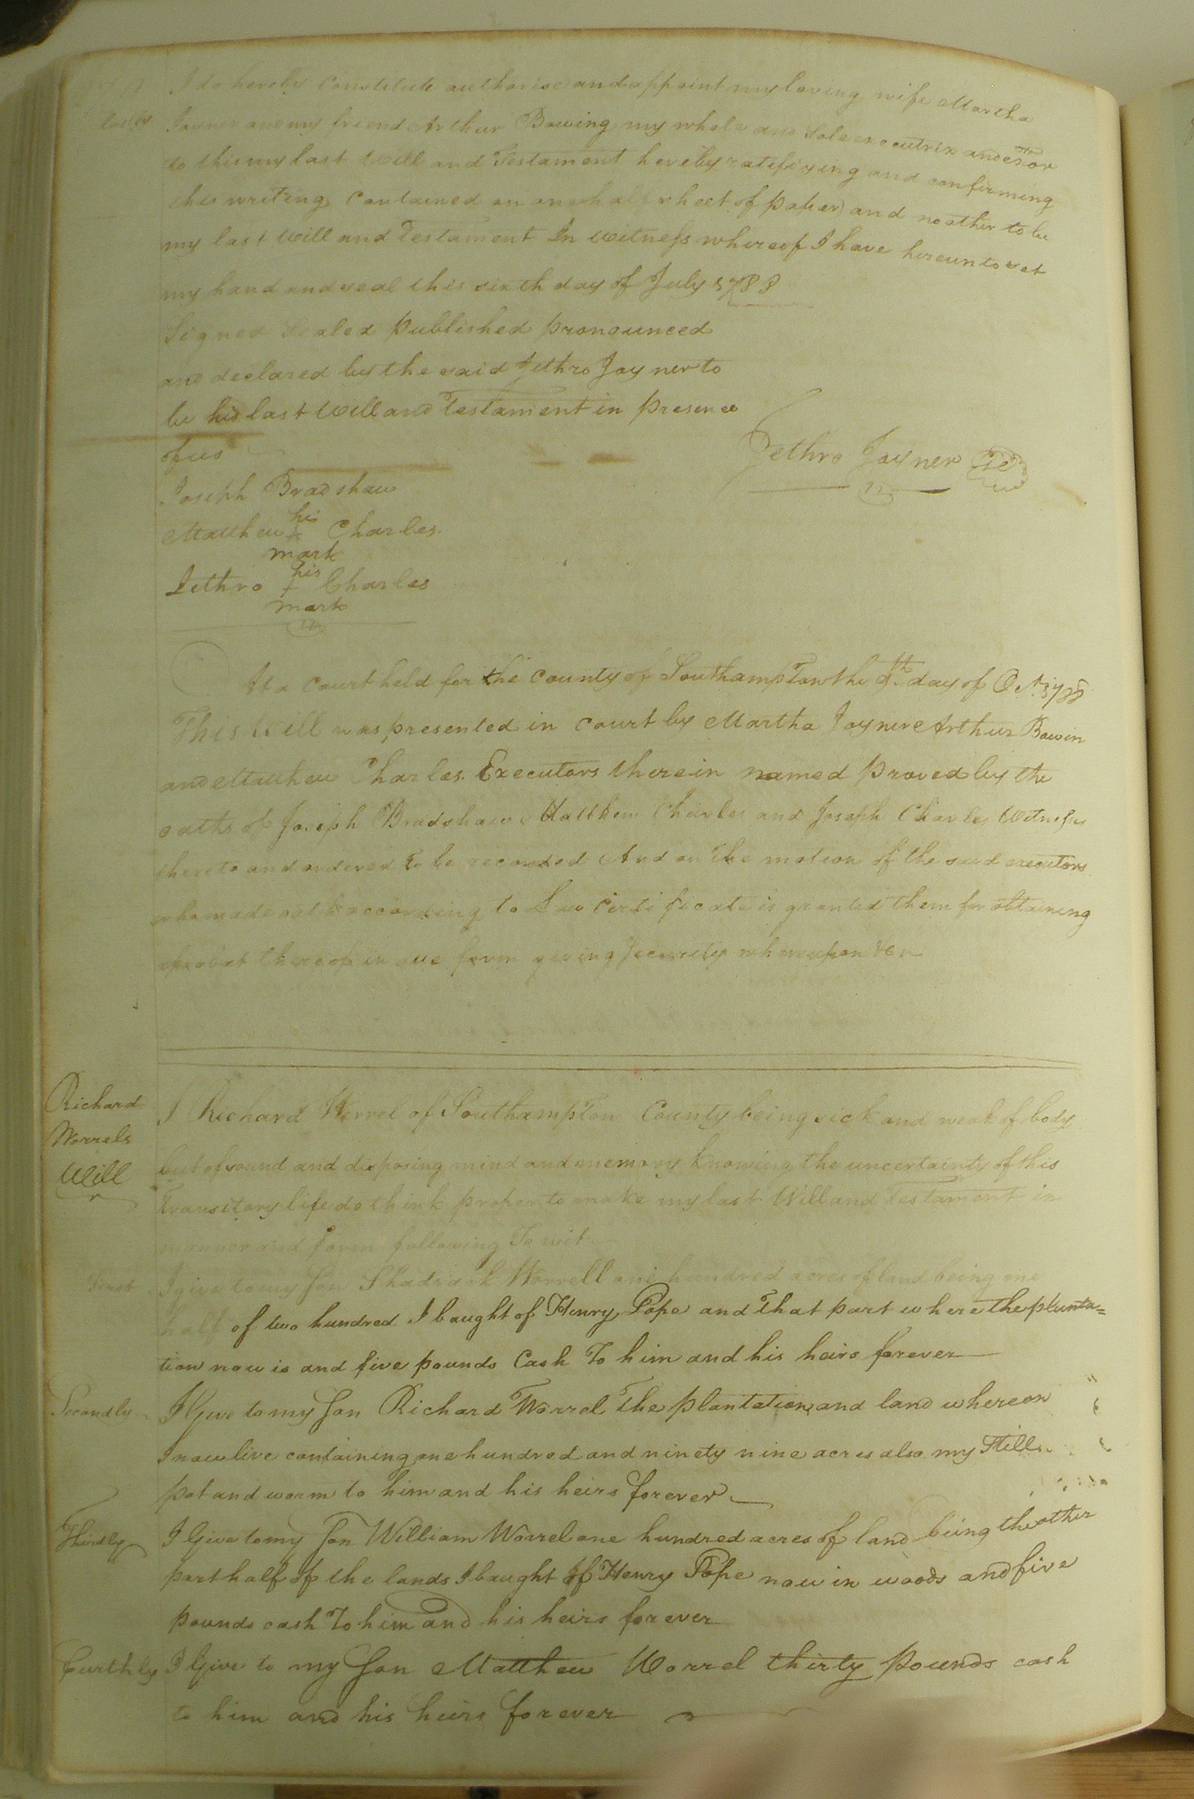 I do hereby Constitute authorise and appoint my loving wife Martha
Joyner and my friend Arthur Bowing my whole and sole executrix and extor
to this my last Will and Testament hereby ratifying and confirming
this writing contained on one half sheet of paper and no other to be
my last Will and Testament In Witness whereof I have hereunto set
my hand and seal this sixth day of July 1788
Signed Sealed published pronounced
and declared by the said Jethro Joyner to
be his last Will and Testament in presence
of us
Jethro Joyner
Joseph Bradshaw
Matthew his Charles
mark
Jethro his Charles
mark
At a Court held for the County of Southampton the day of Oct. 1788
This Will was presented in Court by Martha Joyner Arthur Bowin
and Matthew Charles Executors therein named proved by the
oaths of Joseph Bradshaw Matthew Charles and Joseph Charles Witnesses
thereto and ordered to be recorded And on the motion of the said executors
who made oath according to Law Certificate is granted them for obtaining
a probat thereof in due form giving Security whereupon &c
Richard
Worrels
Will
I Richard Worrel of Southampton County being sick and weak of body
but of sound and disposing mind and memory knowing the uncertainty of this
transitory life do think proper to make my last Will and Testament in
manner and form following To wit
I give to my Son Shadrack Worrell one hundred acres of land being one
half of two hundred I baught of Henry Pope and that part where the planta=
tion now is and five pounds Cash To him and his heirs forever
Secondly I Give to my Son Richard Worrel The plantation and land whereon
I now live containing one hundred and ninety nine acres also my Still
pot and worm to him and his heirs forever
Thirdly I Give to my Son William Worrel one hundred acres of land being the other
part half of the lands I baught of Henry Pope now in woods and five
pounds cash To him and his heirs forever
Furthly I Give to my Son Matthew Worrel thirty pounds cash
to him and his heirs forever